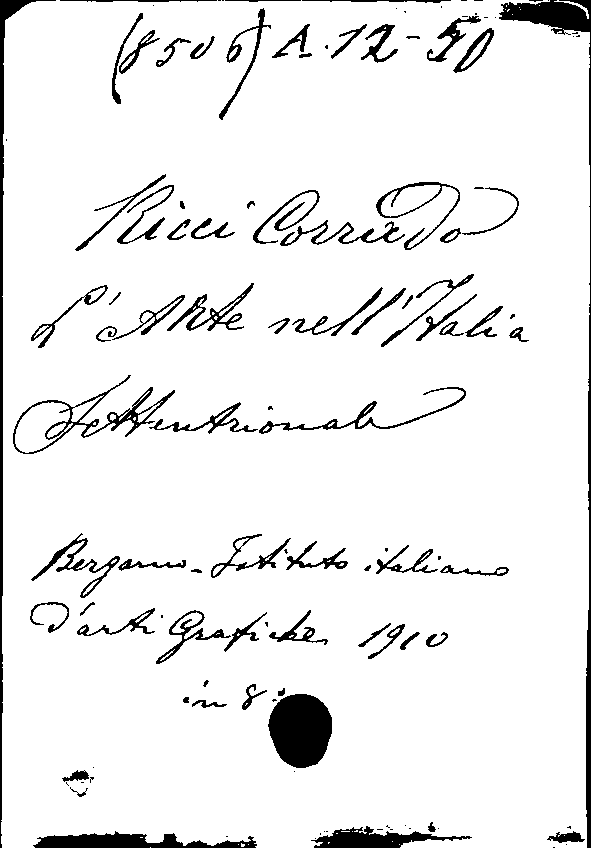 (8506) A. 12-50
Ricci Corrado
L'Arte nell'Italia
Settentrionale
Bergamo - Istituto italiano
d'arti Grafiche 1910
in 8°